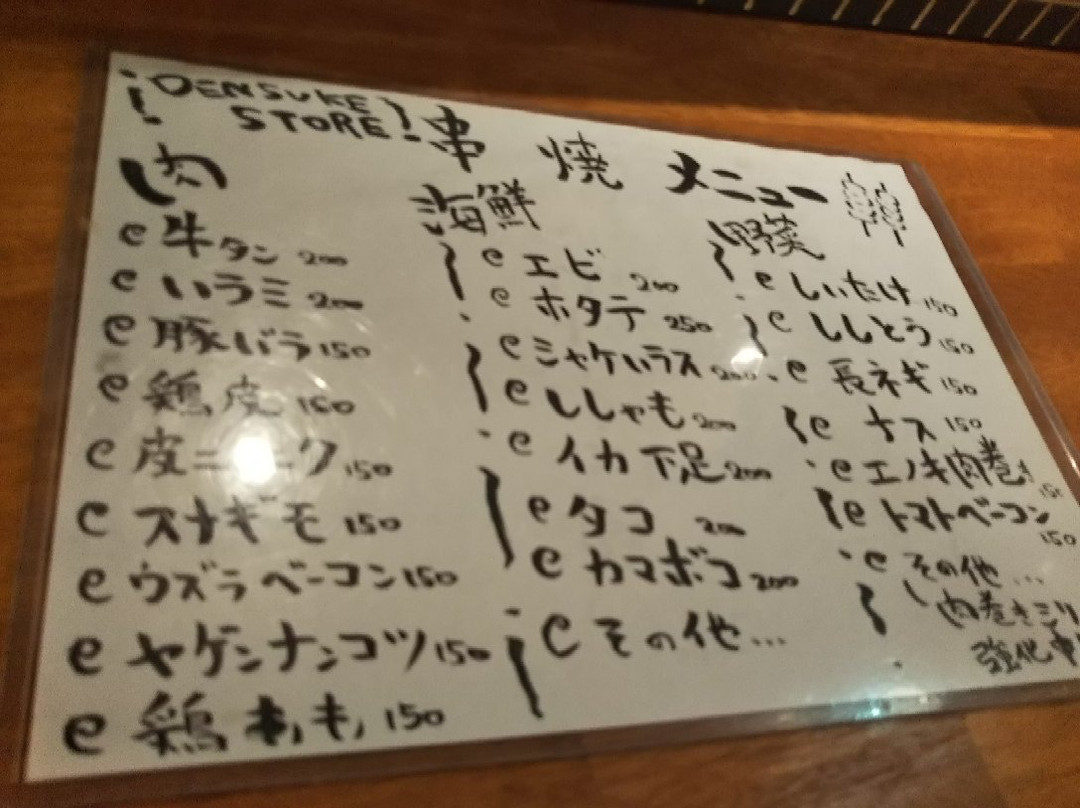 ¡DENSUKE
STORE!
串焼メニュー
肉
e 牛タン 200
e ハラミ 200
e 豚バラ 150
e 鶏皮 150
e 皮ニンニク 150
e スナギモ 150
e ウズラベーコン 150
e ヤゲンナンコツ 150
e 鶏もも 150
海鮮
e エビ 200
e ホタテ 250
e シャケハラス 200
e ししゃも 200
e イカ下足 200
e タコ 200
e カマボコ 200
e その他...
野菜
e しいたけ 150
e ししとう 150
e 長ネギ 150
e ナス 150
e エノキ肉巻き 150
e トマトベーコン 150
e その他...
肉巻きミリ
強化中